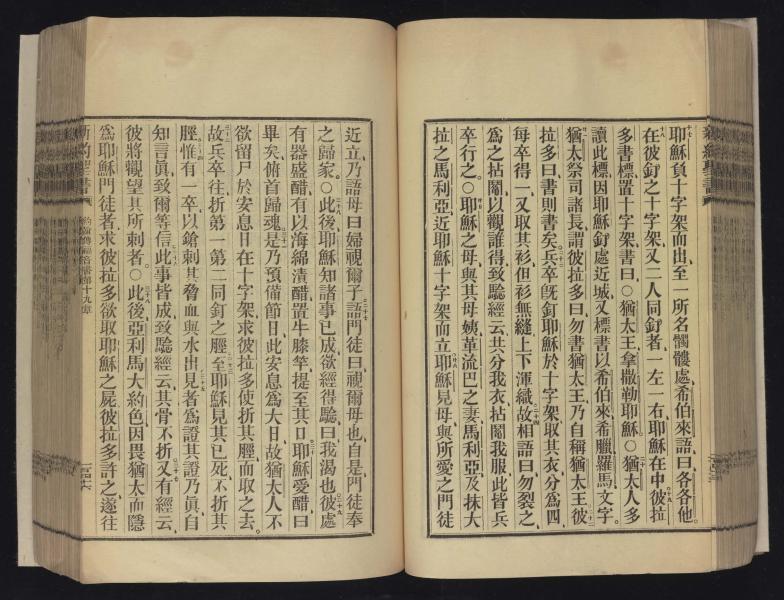 耶穌負十字架而出至一所名髑髏處希伯來語曰各各他
在彼釘之十字架又二人同釘者一左一右耶穌在中彼拉
多書標置十字架書曰○猶太王拿撒勒耶穌○猶太人多
讀此標因耶穌釘處近城又標書以希伯來希臘羅馬文字
猶太祭司諸長謂彼拉多曰勿書猶太王乃自稱猶太王彼
拉多曰書則書矣兵卒旣釘耶穌於十字架取其衣分爲四
每卒得一又取其衫但衫無縫上下渾織故相語曰勿裂之
爲之拈鬮以觀誰得致驗經云共分我衣拈鬮我服此皆兵
卒行之○耶穌之母與其母姨革流巴之妻馬利亞及抹大
拉之馬利亞近耶穌十字架而立耶穌見母與所愛之門徒
近立乃語母曰婦視爾子語門徒曰視爾母也自是門徒奉
之歸家○此後耶穌知諸事已成欲經得驗曰我渴也彼處
有器盛醋有以海絨漬醋置牛膝竿提至其口耶穌受醋曰
畢矣俯首歸魂是乃預備節日此安息爲大日故猶太人不
欲留尸於安息日在十字架求彼拉多使折其脛而取之去
故兵卒往折第一第二同釘之脛至耶穌見其已死不折其
脛惟有一卒以鎗刺其脅血與水出見者爲證其證乃眞自
知言眞致爾等信此事皆成致驗經云其骨不折又有經云
彼將觀望其所刺者○此後亞利馬大約色因畏猶太而隱
爲耶穌門徒者求彼拉多欲取耶穌之屍彼拉多許之遂往
新約聖書
約翰傳福音書第十九章